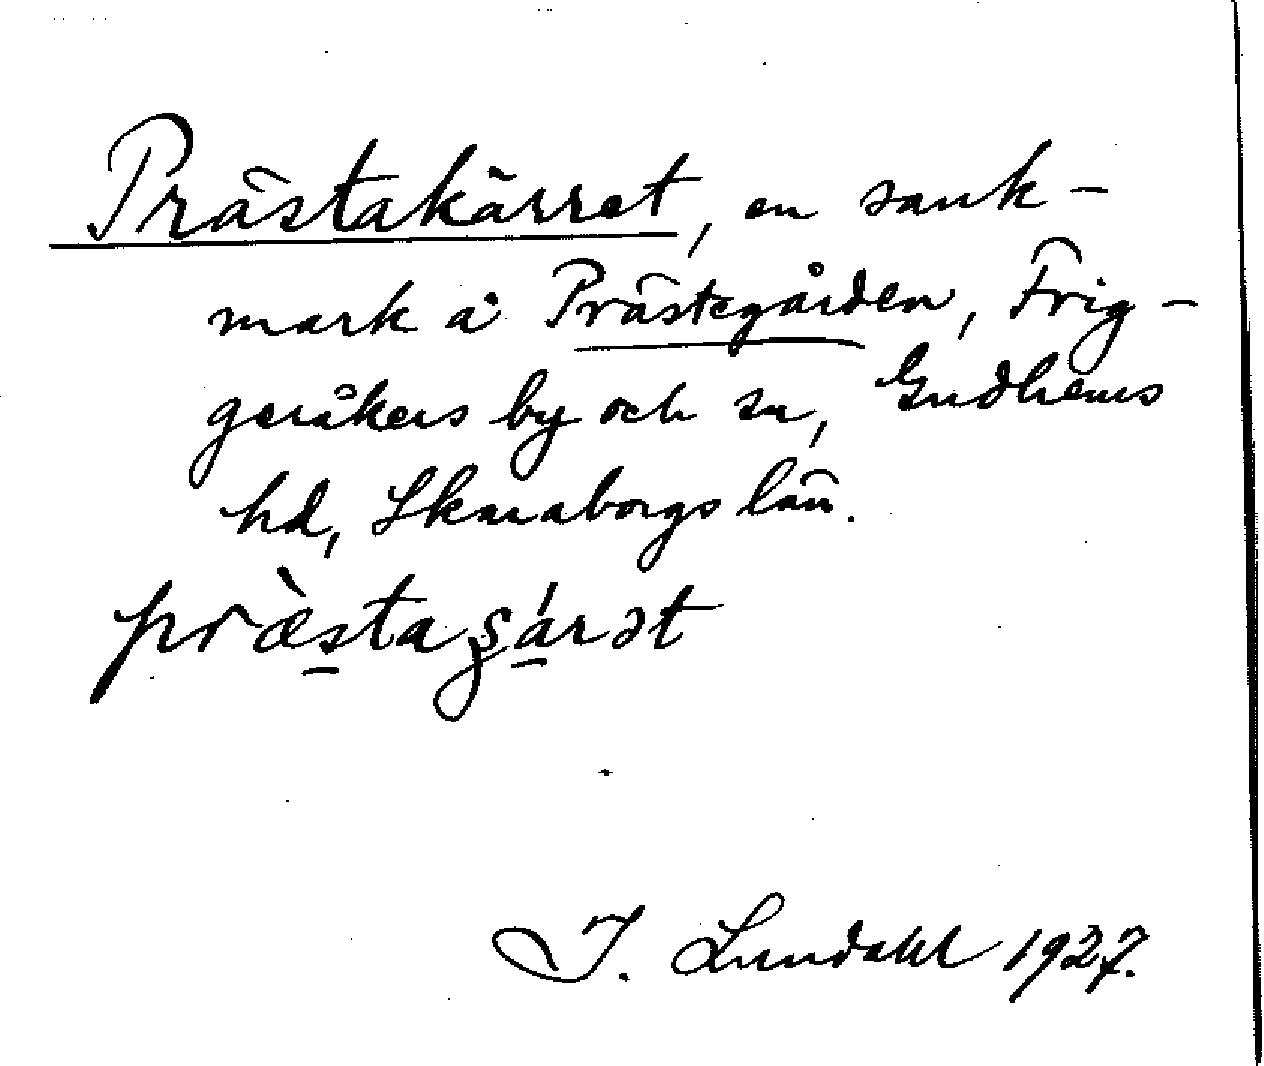 Prästakärret, en sank-
mark å Prästegården, Frig-
geråkers by och sn, Gudhems
hd, Skaraborgs län.
præ̀sta ʂárət
I. Lundahl 1927.